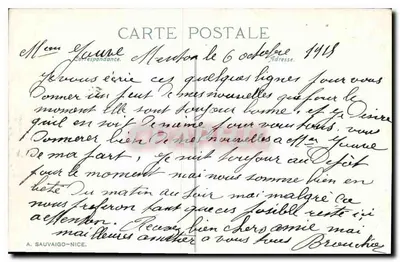 CARTE POSTALE
Correspondance. Adresse.
Menton le 6 octobre 1915
Je vous écrie ces quelques lignes pour vous
donner un peut de mes nouvelles que pour le
moment elle sont toujour bonne, et je désire
qu'il en soit de même pour vous tous, vous
donnerer bien de mes nouvelles a Mme
de ma part, Je suit toujour au Depôt
pour le moment mai nous somme bien en
du matin au soir mai malgre ca
nous preferon tant que cas posible reste ici
a Menton. Recever bien chers amie mai
mailleures amitier a vous tous
A. SAUVAIGO - NICE.